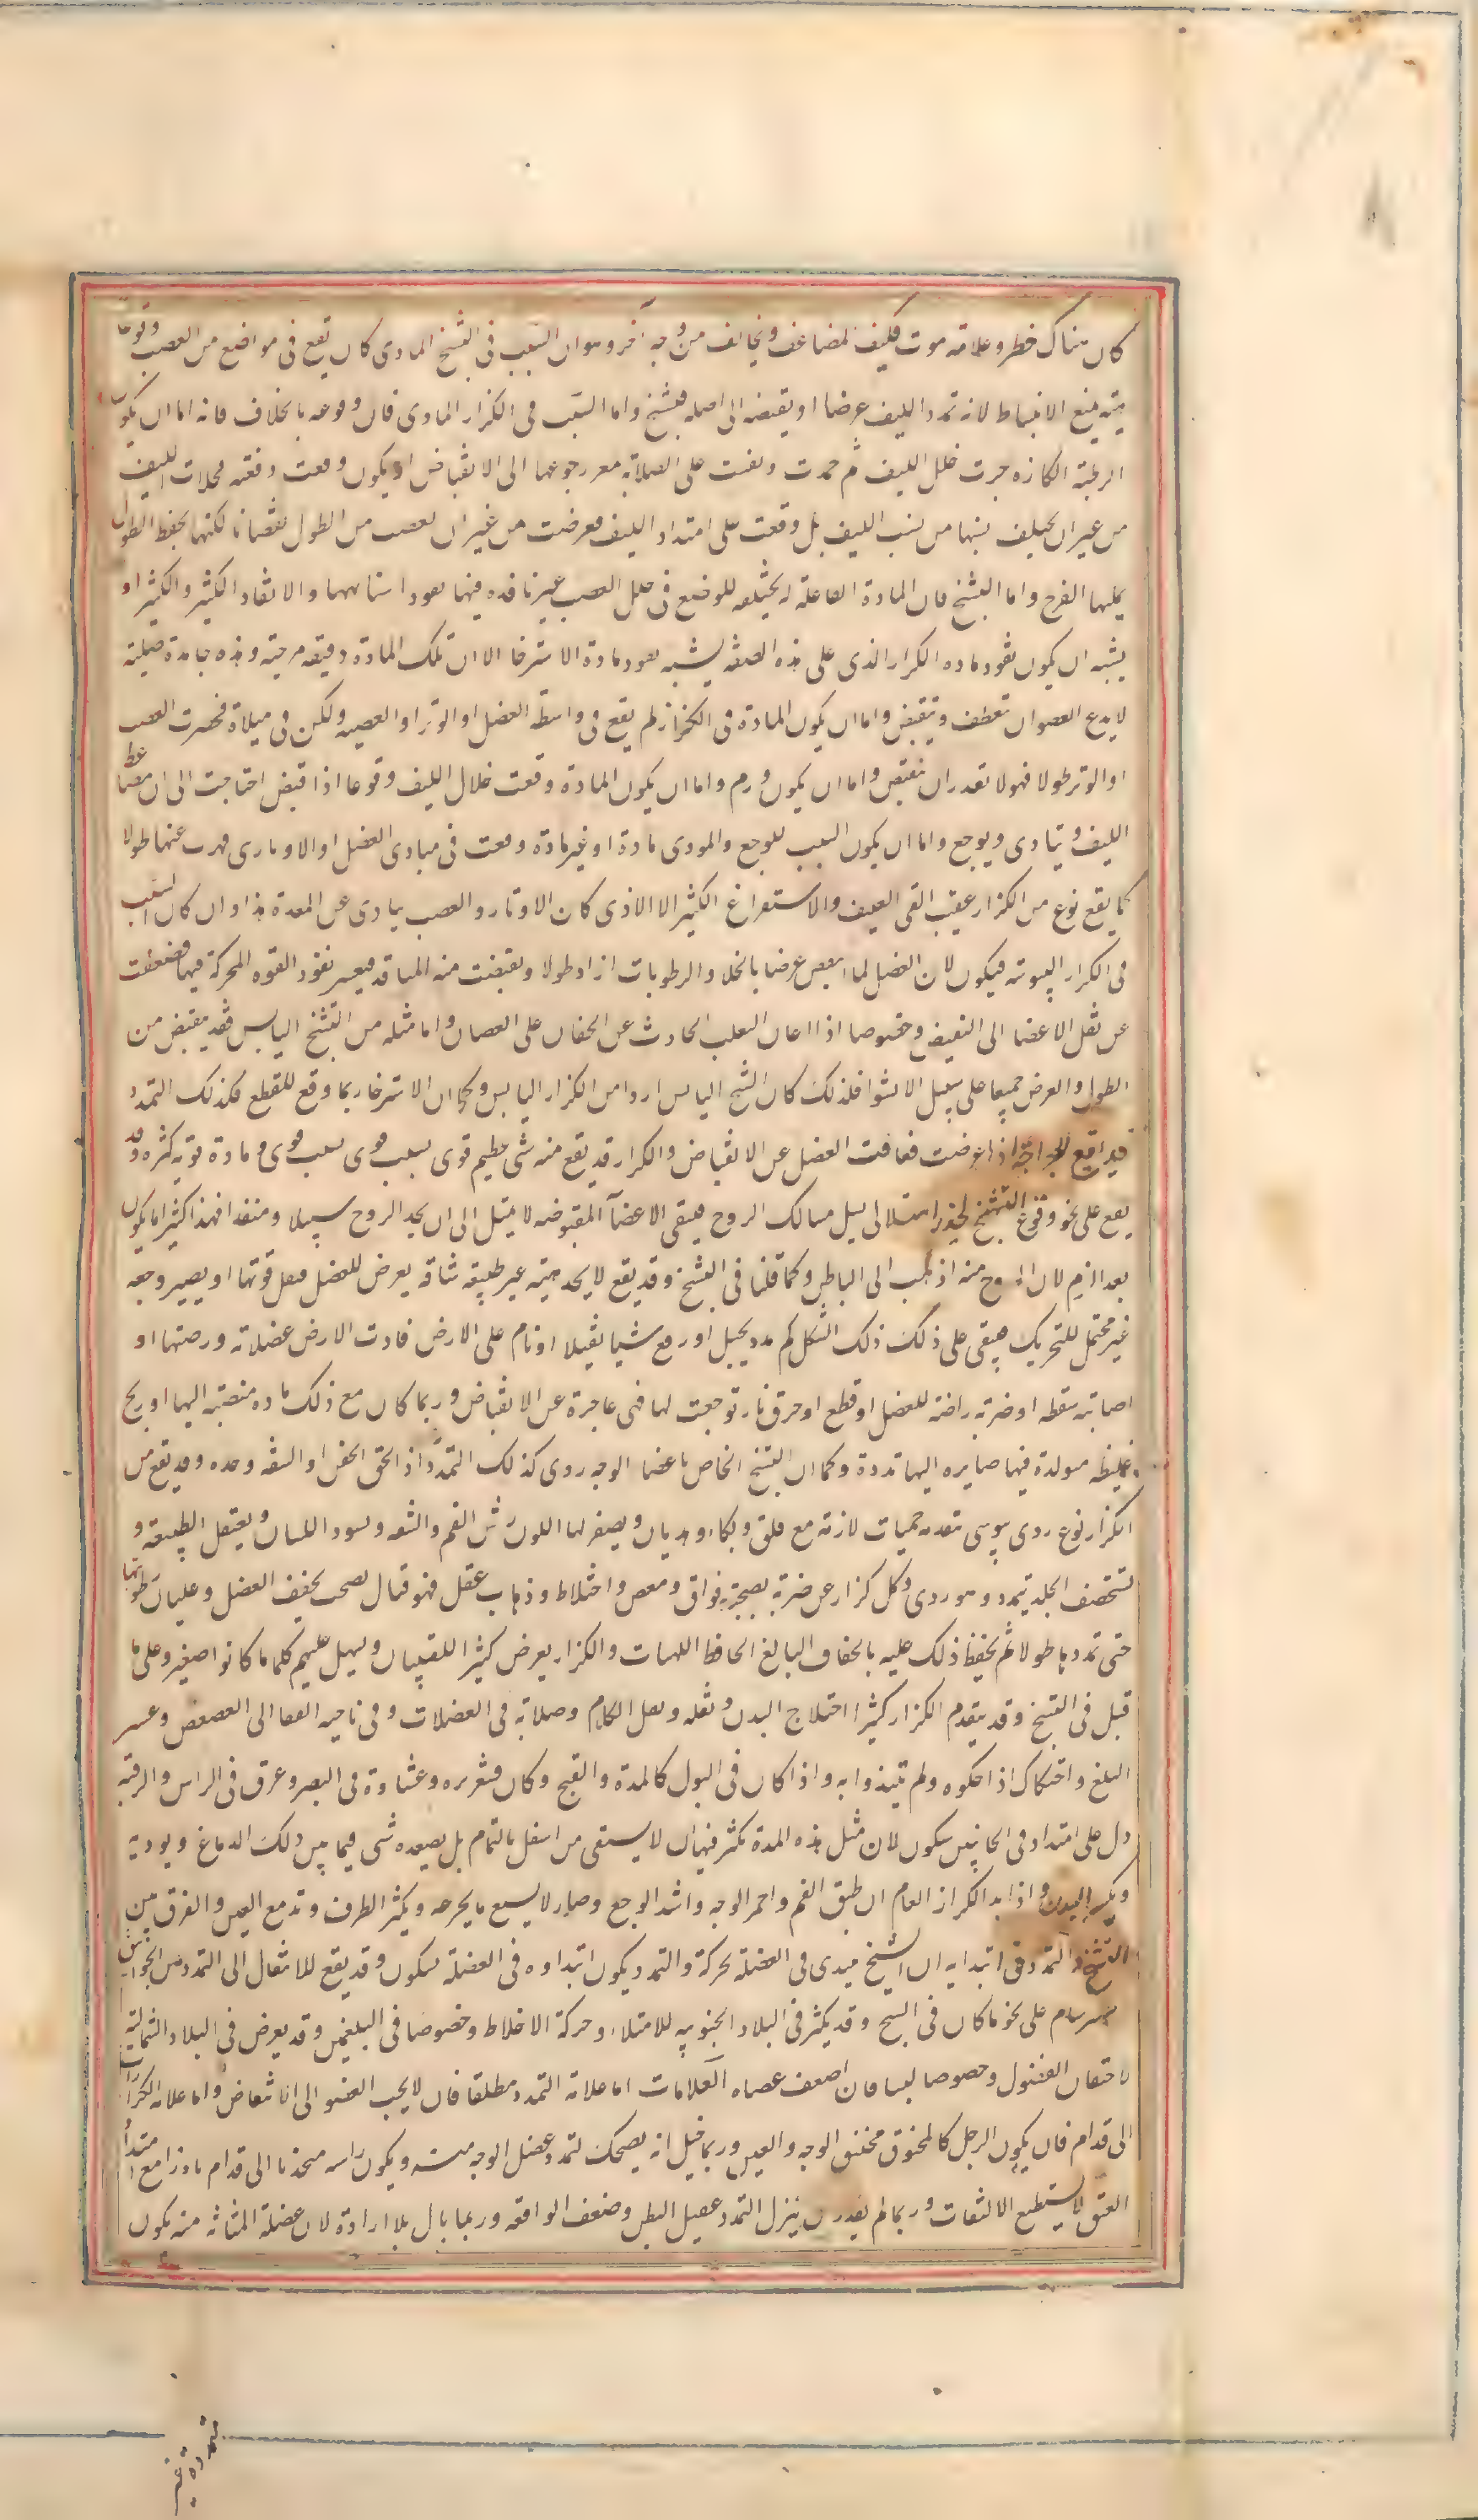 كان هناك خطر وعلامة موت فكيف المضاعف ويخالف من وجه آخر وهو ان السبب فى التشنج المادى كان يقع فى مواضع من العصب وقوعا
هيئه يمنع الانبساط لانه تمدد الليف عرضا او يقبضه الى اصله فيشنج واما السبب فى الكزاز المادى فان وقوعه بالخلاف فانه اما ان يكون
الرطبة الكازه جرت خلل الليف ثم جمدت وبقيت على الصلابة معسر رجوعها الى الانقباض او يكون وقعت دفعة محلات الليف
من غير ان يختلف نسبتها من نسب الليف بل وقعت على امتداد الليف فعرضت من غير ان نقصت من الطول نقصانا لكنها يحفظ الطول
يملها الفرج واما التشنج فان المادة الفاعلة له يختلف الوضع فى خلل العصب غير نافذه فيها نفودا متشابها والانقاد الكثير والكثير او
يشبه ان يكون نفود ماده الكزاز الذى على هذه الصفه يشبه نفود مادة الاسترخا الا ان تلك المادة رقيقه مرخية وهذه جامدة صلبة
لا يدع العضو ان تعطف وينقبض واما ان يكون المادة فى الكزاز لم يقع فى واسطه العضل او الوتر او العصبه ولكن فى مبداه فحصرت العصب
او الوتر طولا فهو لا تقدر ان تنقبض واما ان يكون ورم واما ان يكون المادة وقعت خلال الليف وقوعا اذا قبض احتاجت الى ان يضغط
الليف ويتادى ويوجع واما ان يكون السبب للوجع والموذى مادة او غير مادة وقعت فى مبادى العضل او الاوتار فهرب عنها طولا
كما يقع نوع من الكزاز عقيب القى العنيف والاستفراغ الكثير الا الاذى كان الاوتار والعصب يتادى عن المعدة هذا وان كان السبب
فى الكزاز اليبوسة فيكون لان العضل لما انتقص عرضا بانحلال الرطوبات ازداد طولا وتقبضت منه المنافذ فيعسر نفود القوه المحركة فيها فضعفت
عن نقل الاعضا الى التقبض وخصوصا اذا اعان الصلب الحادث عن الجفاف على العصيان واما مثله من التشنج اليابس فقد يقبض من
الطول والعرض جميعا على سبيل الانشوا فلذلك كان التشنج اليابس اردا من الكزاز اليابس وكما ان الاسترخا ربما وقع للقطع فكذلك التمدد
قد يقع للجراحة اذا عرضت فعافت العضل عن الانقباض والكزاز قد يقع منه شى عظيم قوى بسبب قوى ومادة قويه كثيره وقد
يقع على نحو وقوع التشنج لخدر امتلائى يسل مسالك الروح فيبقى الاعضآ المقبوضه لا يتبل الى ان يجد الروح سبيلا ومنفدا فهذا كثيرا ما يكون
بعد النوم لان الروح منه اذهب الى الباطن وكما قلنا فى التشنج وقد يقع لا يجد هيئه غير طبيعيه شاقه يعرض للعضل فيقل قوتها او يصير وجعه
غير محتمل للتحريك فيبقى على ذلك ذلك الشكل كمن مد بحبل او رفع شيا ثقيلا او نام على الارض فادت الارض عضلاته ورضتها او
اصابته سقطه او ضربه راضة للعضل او قطع او حرق نار توجعت لها فهى عاجزة عن الانقباض وربما كان مع ذلك ماده منصبة اليها او ريح
غليظه متولدة فيها صايره اليها تمدده وكما ان التشنج الخاص باعضا الوجه ردى كذلك التمدد اذا لحق الجفن او الشفه وحده وقد يقع من
الكزاز نوع ردى يبوسى تتقدمه حميات لازمه مع قلق وبكاء وهذيان ويصفر لها اللون ويبس الفم والشفه ويسود اللسان ويعتقل الطبيعه و
تستحصف الجلد تمدد وهو ردى وكل كزاز عن ضربة يصحبه فواق ومغص واختلاط وذهاب عقل فهو قتال يصحب تجفف العضل وغليان رطوبتها
حتى تمددها طولا ثم يحفظ ذلك عليه بالجفاف البالغ الحافظ الهيئات والكزاز يعرض كثيرا للصبيان ويسهل عليهم كلما كانوا اصغر وعلى ما
قيل فى التشنج وقد يتقدم الكزاز كثيرا اختلاج البدن وثقله وثقل الكلام وصلابة فى العضلات وفى ناحيه القفا الى العصعص وعسر
البلع واحتكاك اذا حكوه ولم يتلذذوا به واذا كان فى البول كالمدة والقيح وكان قشعريره وغشاوة فى البصر وعرق فى الراس والرقبه
دل على امتداد فى الجانبين سيكون لان مثل هذه المدة يكثر فيها ان لا يستقى من اسفل بالتمام بل يصعده شى فيما بين ذلك الدماغ ويوذيه
ويكسر البدن واذا بدا الكزاز العام ان طبق الفم واحمر الوجه واشتد الوجع وصار لا يسع ما يجرعه ويكثر الطرف وتدمع العين والفرق بين
التشنج والتمدد فى ابتدايه ان التشنج يبتدى فى العضلة بحركة والتمدد يكون ابتداوه فى العضلة بسكون وقد يقع للانتقال الى التمدد من الخوانيق
سرسام على نحو ما كان فى التشنج وقد يكثر فى البلاد الجنوبيه للامتلاء وحركة الاخلاط وخصوصا فى البلغميين وقد يعرض فى البلاد الشمالية
لاحتقان الفضول وخصوصا للنسا فان اضعف عصباء العلامات اما علامة التمدد مطلقا فان لا يجب العضو الى الانقباض واما علامة الكزاز
الى قدام فان يكون الرجل كالمخنوق مختنق الوجه والعين وربما خيل انه يضحك لتمدد عضل الوجه منه ويكون راسه منجذبا الى قدام بارزا مع امتداد
العنق لا يستطيع الالتفات وربما لم يقدر ان ينزل التمدد عضل البطن وضعف الدافعه وربما بال بلا ارادة لان عضلة المثانه منه يكون
متمددة غير